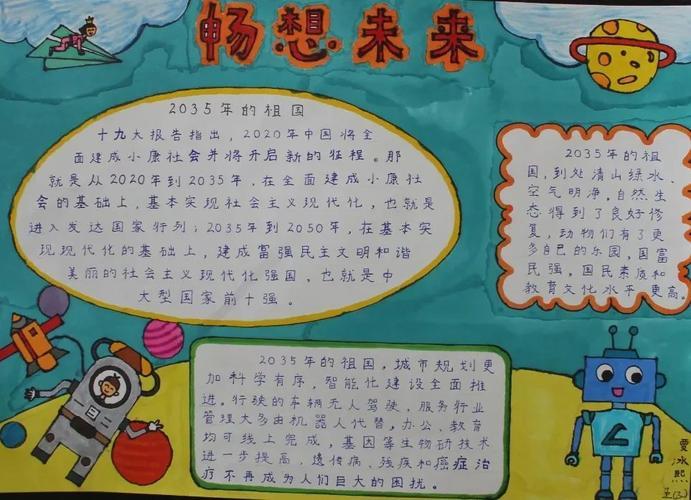 畅想未来
2035年的祖国
十九大报告指出，2020年中国将全
面建成小康社会并将开启新的征程。那
就是从2020年到2035年，在全面建成小康社
会的基础上，基本实现社会主义现代化，也就是
进入发达国家行列；2035年到2050年，在基本实
现现代化的基础上，建成富强民主文明和谐
美丽的社会主义现代化强国，也就是中
大型国家前十强。
2035年的祖
国，到处清山绿水，
空气明净，自然生
态得到了良好修
复，动物们有了更
多自己的乐园，国富
民强，国民素质和
教育文化水平更高。
2035年的祖国，城市规划更
加科学有序，智能化建设全面推
进。行驶的车辆无人驾驶，服务行业
管理大多由机器人代替，办公、教育
均可线上完成，基因等生物研技术
进一步提高，遗传病、残疾和癌症治
疗不再成为人们巨大的困扰。
贾冰熙